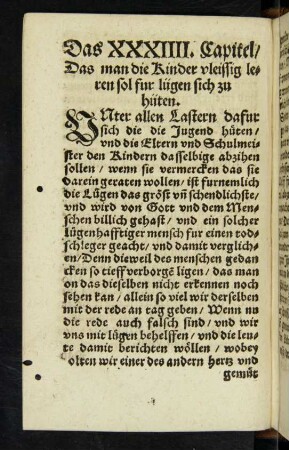 Das XXXIIII. Capitel/
Das man die Kinder vleissig le-
ren sol fur lügen sich zu
hüten.
VNter allen Lastern dafur
sich die die Jugend hüten/
vnd die Eltern vnd Schulmei-
ster den Kindern dasselbige abzihen
sollen/ wenn sie vermercken das sie
darein geraten wollen/ ist furnemlich
die Lügen das gröst vñ schendlichste/
vnd wird von Gott vnd dem Men-
schen billich gehast/ vnd ein solcher
lügenhafftiger mensch fur einen tod-
schleger geacht/ vnd damit verglich-
en/ Denn dieweil des menschen gedan
cken so tieff verborgẽ ligen/ das man
on das dieselben nicht erkennen noch
sehen kan/ allein so viel wir derselben
mit der rede an tag geben/ Wenn nu
die rede auch falsch sind/ vnd wir
vns mit lügen behelffen/ vnd die leu-
te damit berichten wöllen/ wobey
olten wir einer des andern hertz vnd
gemüt